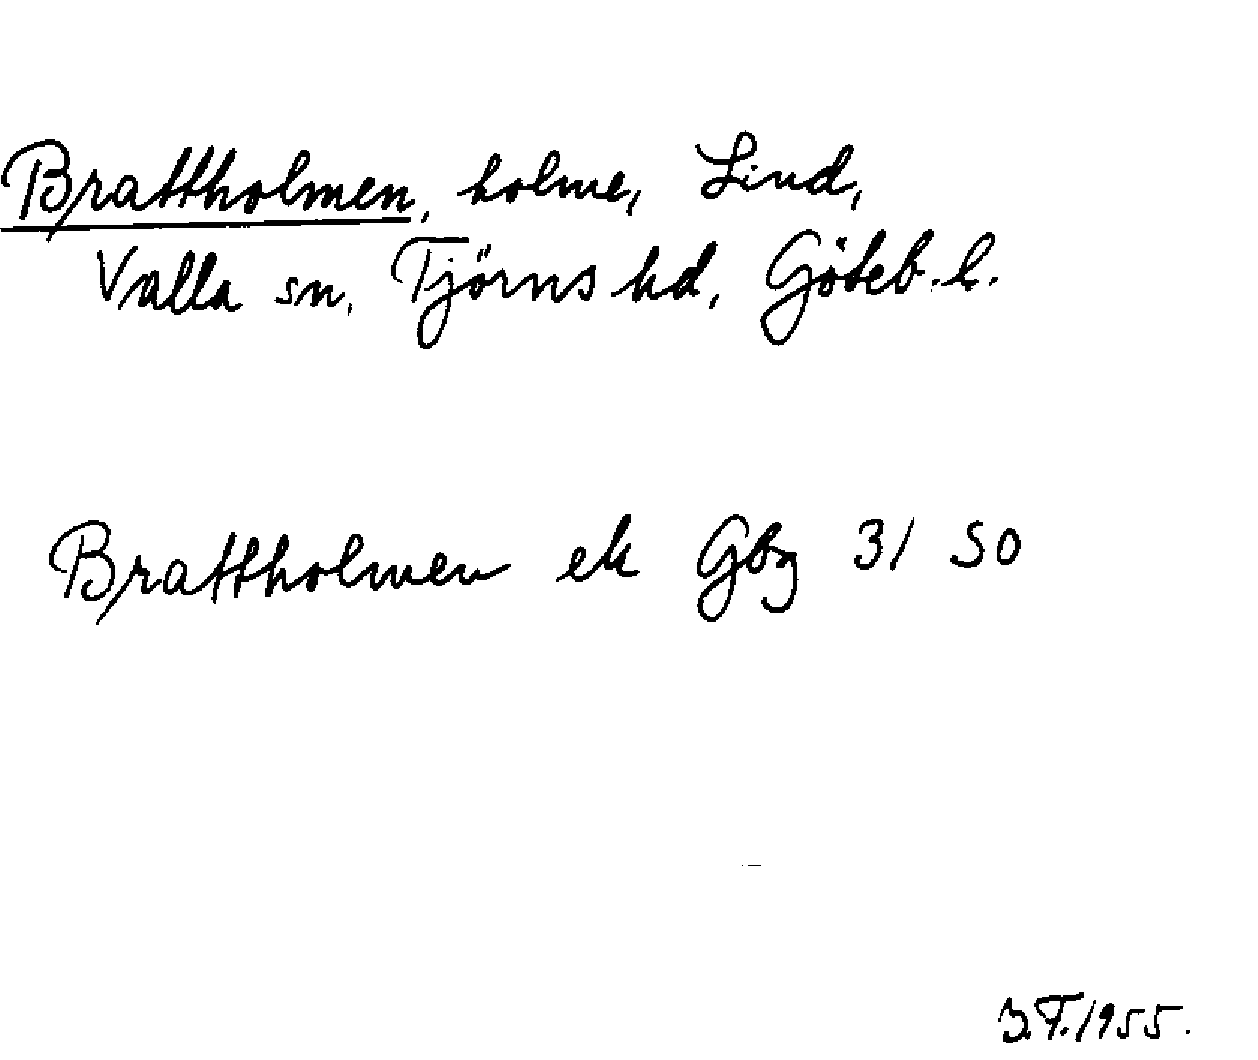 Brattholmen, holme, Lind,
Valla sn, Tjörns hd, Göteb. l.
Brattholmen ek Gbg 31 SO
J.F. 1955.